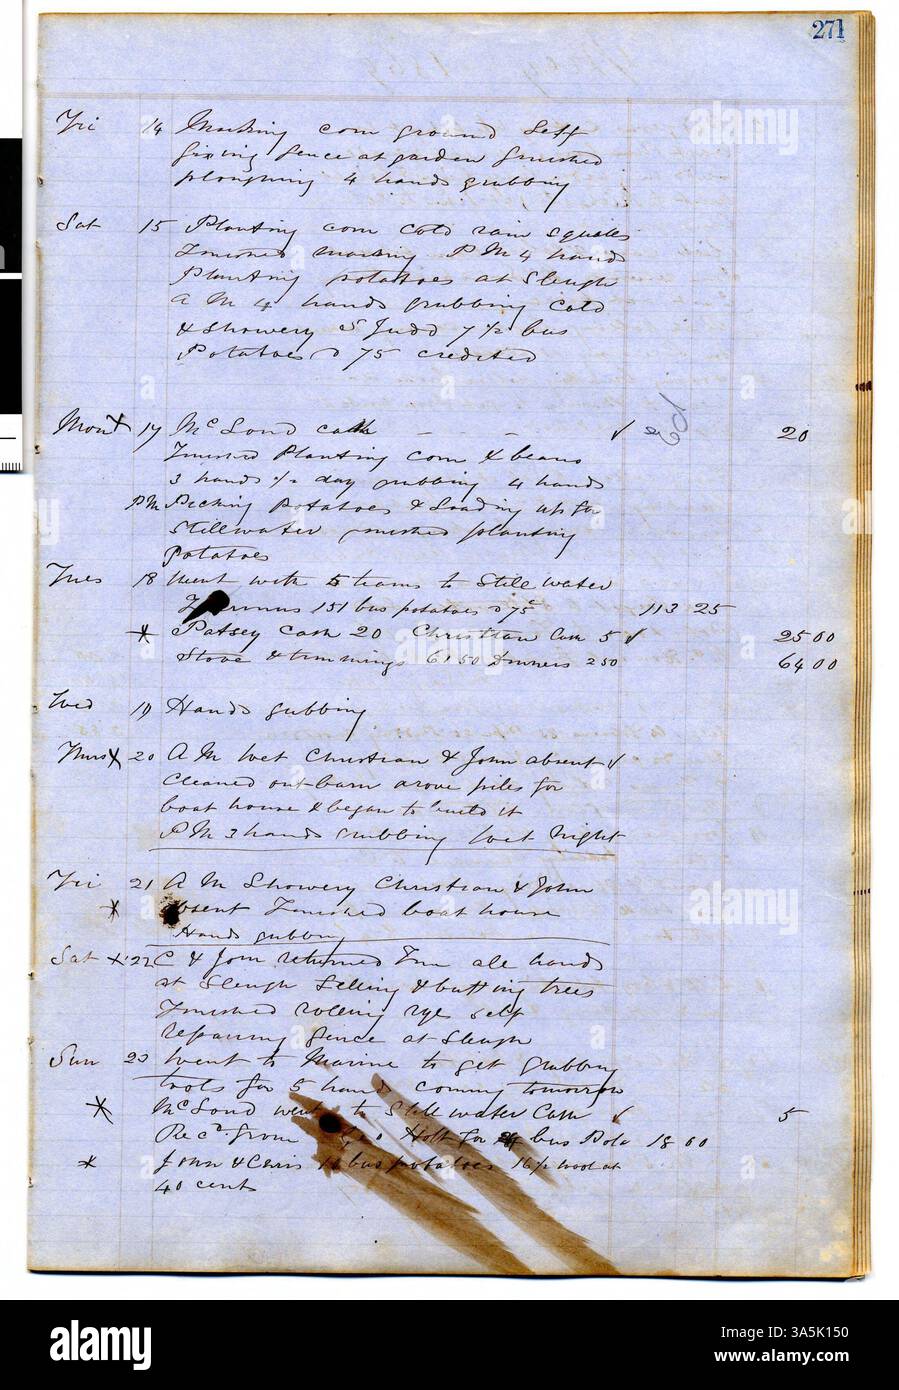 271
Fri 14 Marking corn ground Self
fixing fence at garden finished
ploughing 4 hands grubbing
Sat 15 Planting corn cold rain squalls
Finished marking P M 4 hands
Planting potatoes at Slough
A M 4 hands grubbing cold
& showery S Judd 7 1/2 bus
Potatoes @ 75 credited
Mon X 17 McLoud cash - - - ✓ Pd 20
Finished Planting corn & beans
3 hands 1/2 day grubbing 4 hands
PM Picking Potatoes & Loading up for
Stillwater finished planting
Potatoes
Tues 18 Went with 5 teams to Still water
151 bus potatoes @ 75c 113 25
* Patsey Cash 20 Christian Cash 5 ✓ 25 00
Stove & trimmings 61 50 Dinners 2 50 64 00
Wed 19 Hands grubbing
Thurs X 20 A M Wet Christian & John absent ✓
Cleaned out barn drove piles for
boat house & began to build it
P M 3 hands grubbing Wet Night
Fri 21 A M Showery Christian & John
* absent Finished boat house
Hands grubbing
Sat X 22 C & John returned all hands
at Slough Felling & butting trees
Finished rolling rye Self
repairing fence at Slough
Sun 23 Went to Marine to get grubbing
tools for 5 hands coming tomorrow
* McLoud went to Still water Cash ✓ 5
Recd from Geo Holt for 24 bus Pota 18 00
* John & Chris 11 bus potatoes 16 1/2 wool at
40 cents
alamy
www.alamy.com
Image ID: 3A5K150